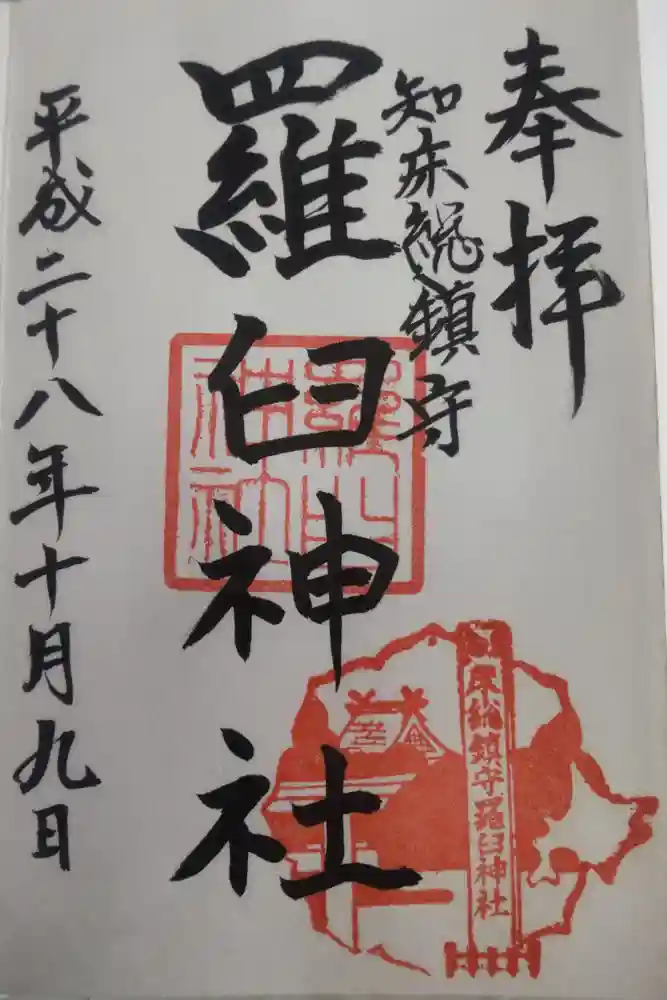 奉拝
知床総鎮守
羅臼神社
平成二十八年十月九日
羅臼神社
床総鎮守羅臼神社